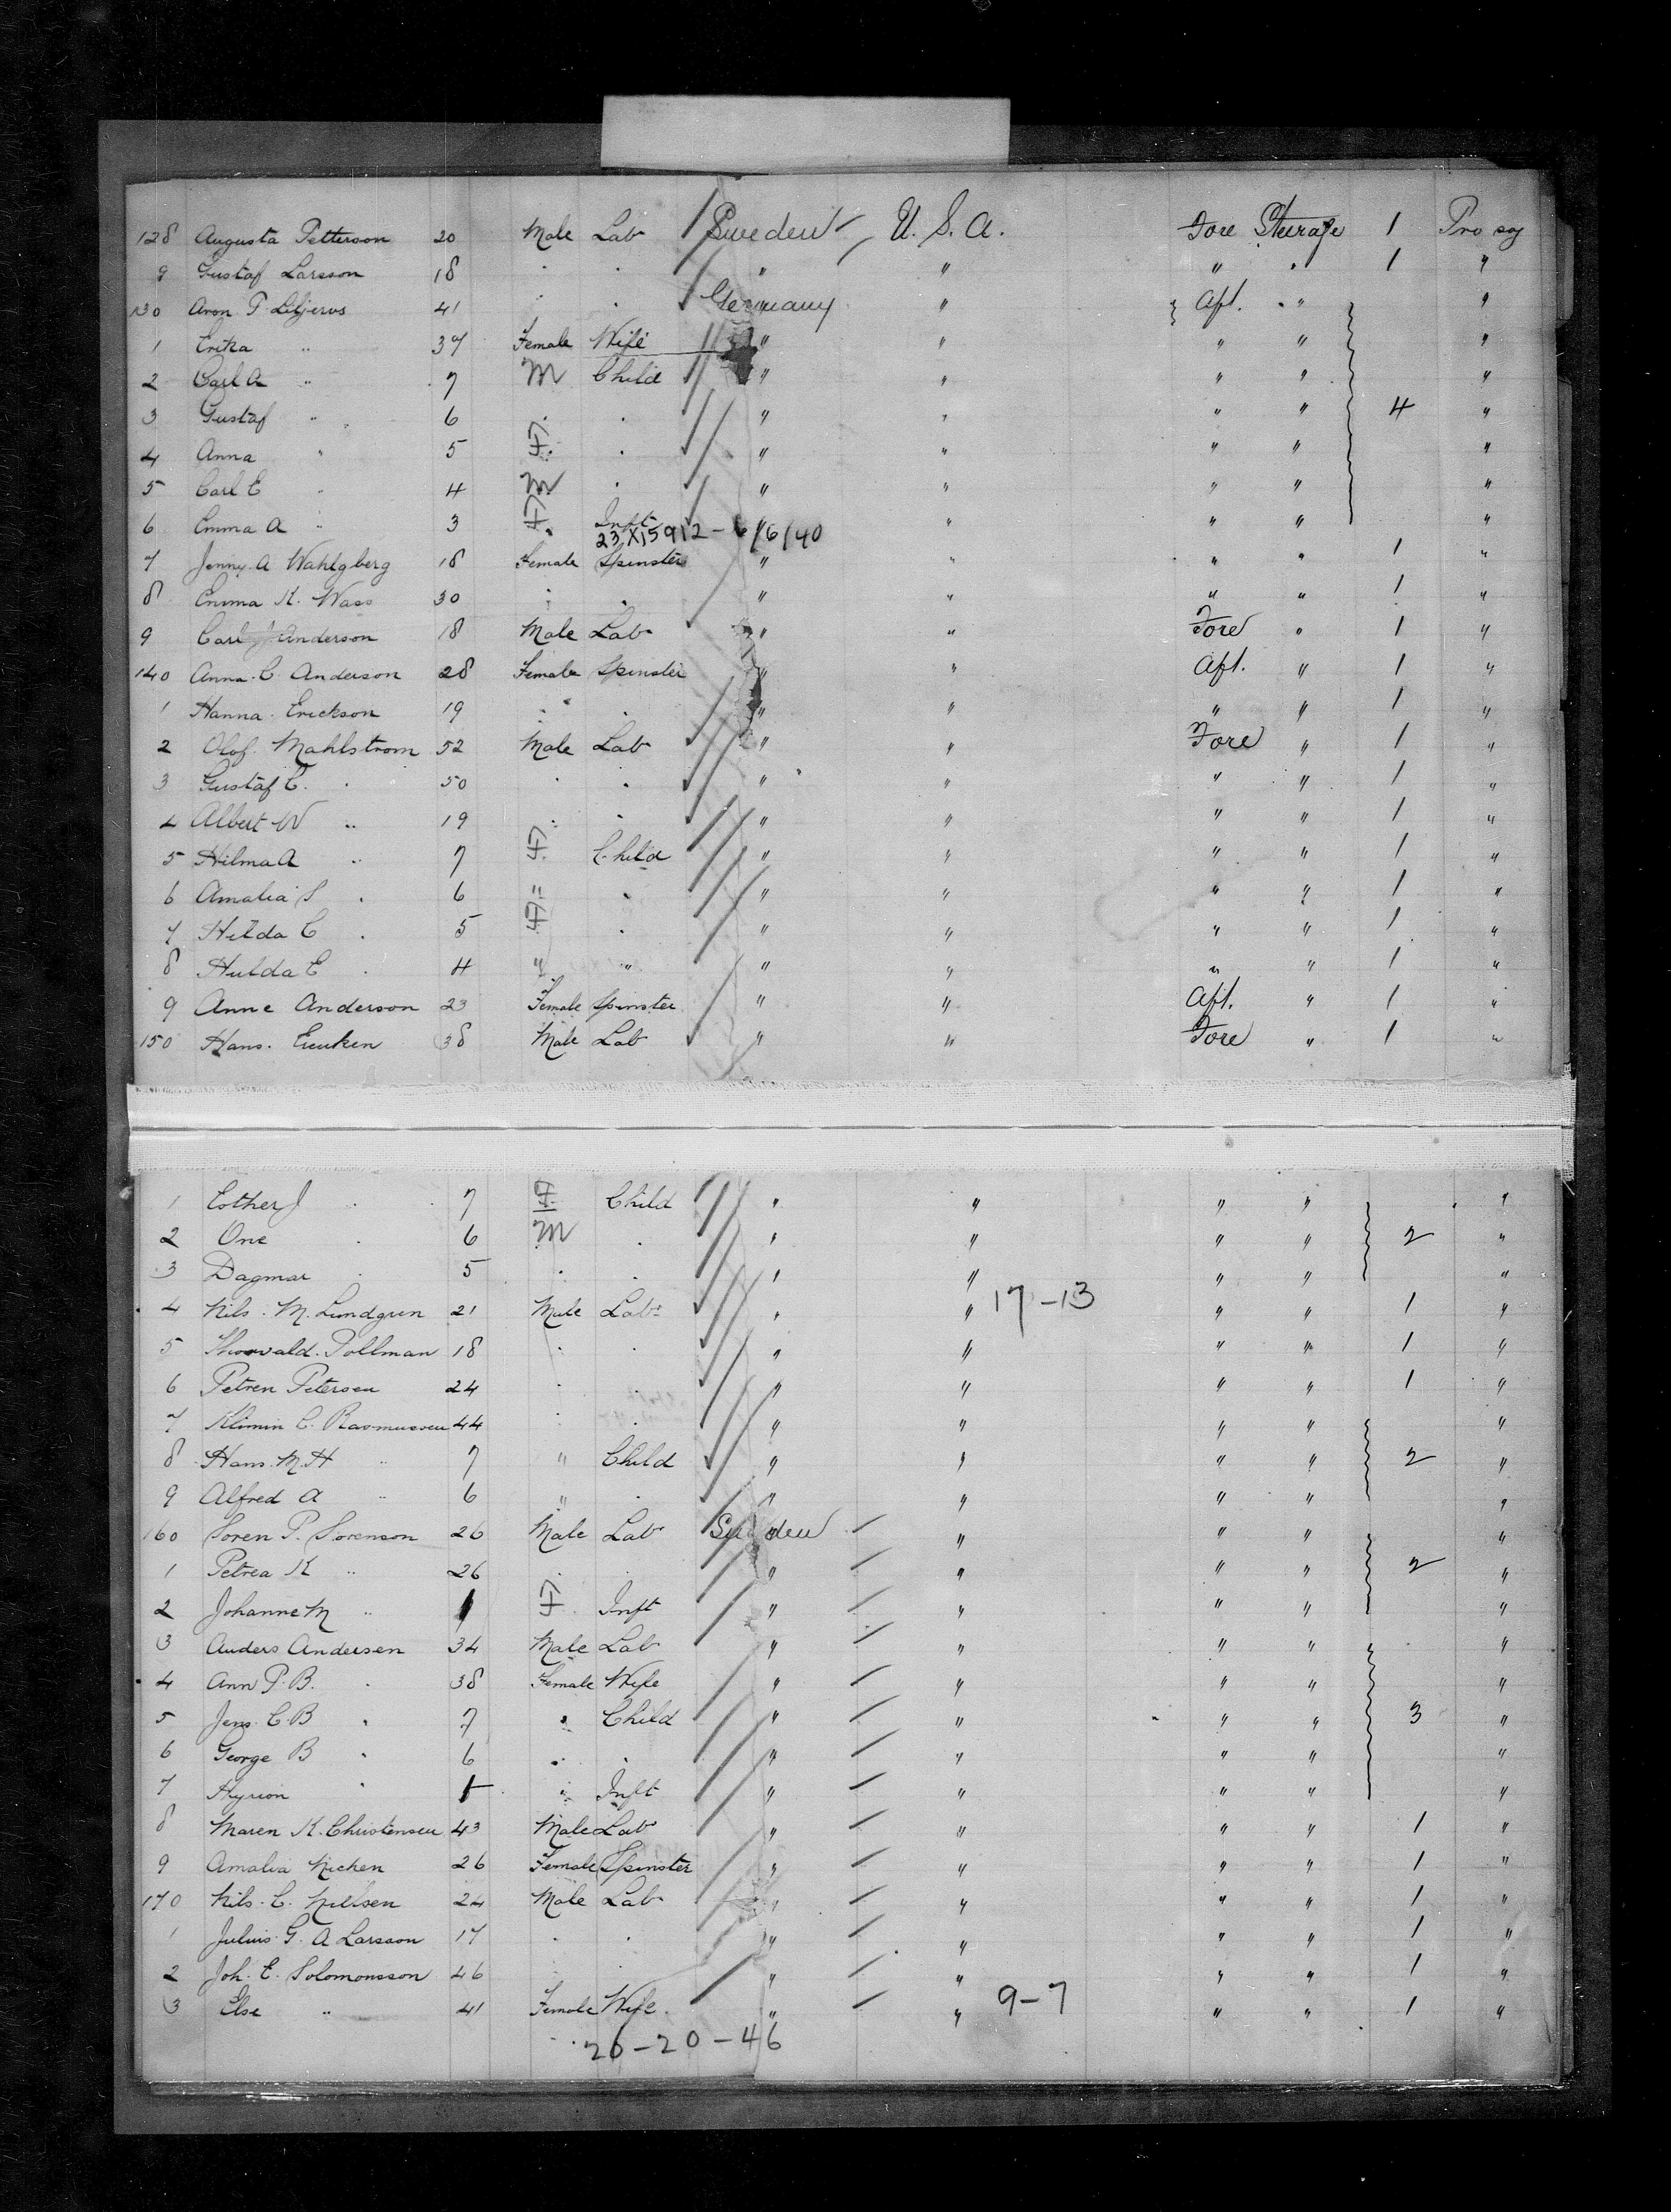 128 Augusta Petterson 20 Male Lab Sweden U. S. A. Fore Steerage 1 Pro sog
9 Gustaf Larsson 18 " " " " " " 1 "
130 Aron P. Liljeros 41 " " Germany " Aft. " "
1 Erika " 37 Female Wife " " " " "
2 Carl A " 7 M Child " " " " "
3 Gustaf " 6 " " " " " " 4 "
4 Anna " 5 F. " " " " " "
5 Carl E " 4 M " " " " " "
6 Emma A " 3 F. Inft " " " " "
23 X15912 - 6/6/40
7 Jenny A Wahlgberg 18 Female Spinster " " " " 1 "
8 Emma K. Wass 30 " " " " " " 1 "
9 Carl J Anderson 18 Male Lab " " Fore " 1 "
140 Anna. C. Anderson 28 Female Spinster " " Aft. " 1 "
1 Hanna. Erickson 19 " " " " " " 1 "
2 Olof. Mahlstrom 52 Male Lab " " Fore " 1 "
3 Gustaf C. " 50 " " " " " " 1 "
4 Albert W " 19 " " " " " " 1 "
5 Hilma A " 7 F. Child " " " " 1 "
6 Amalia S " 6 " " " " " " 1 "
7 Hilda C " 5 F. " " " " " 1 "
8 Hulda E " 4 " " " " " " 1 "
9 Anne Anderson 23 Female Spinster " " Aft. " 1 "
150 Hans. 38 Male Lab " " Fore " 1 "
1 Esther J " 7 F. Child " " " " "
2 One " 6 M " " " " " 2 "
3 Dagmar " 5 " " " " " " "
4 Nils. M. Lundgren 21 Male Lab " " 17-13 " " 1 "
5 Thorvald. Pollman 18 " " " " " " 1 "
6 Petren Petersen 24 " " " " " " 1 "
7 Klimin C. Rasmussen 44 " " " " " " "
8 Hans. M. H " 7 " Child " " " " 2 "
9 Alfred A " 6 " " " " " " "
160 Soren P. Sorenson 26 Male Lab Sweden " " " "
1 Petrea K " 26 " " " " " " 2 "
2 Johanne M " 1 F. Inft " " " " "
3 Anders Andersen 34 Male Lab " " " " "
4 Ann P. B. " 38 Female Wife " " " " "
5 Jens. C. B " 7 " Child " " " " 3 "
6 George B " 6 " " " " " " "
7 Hyrion " 1 " Inft " " " " "
8 Maren K. Christensen 43 Male Lab " " " " 1 "
9 Amalia 26 Female Spinster " " " " 1 "
170 Nils. C. Nielsen 24 Male Lab " " " " 1 "
1 Julius. G. A Larsson 17 " " " " " " 1 "
2 Joh. E. Solomonsson 46 " " " " " " 1 "
3 Else " 41 Female Wife " " 9-7 " " 1 "
26-20-46